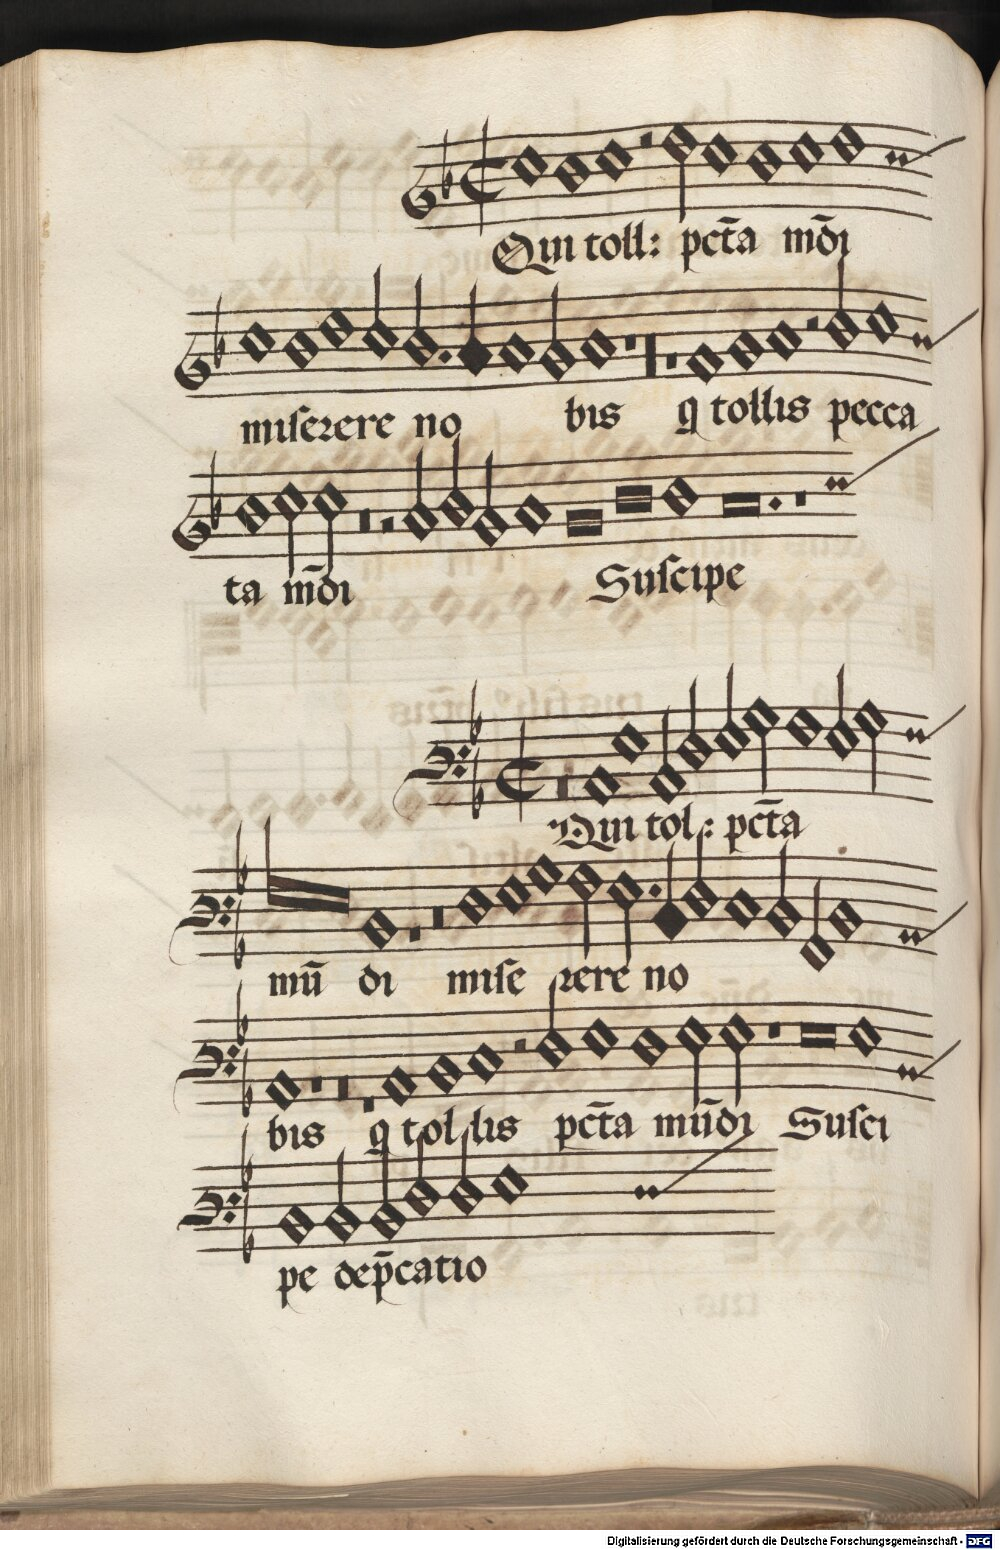 Qui toll: pct̄a mōdi
miserere no bis q tollis pecca
ta mōdi Suscipe
Qui tol: pct̄a
mū di mise rere no
bis q tol lis pct̄a mūdi Susci
pe dep̄catio
Digitalisierung gefördert durch die Deutsche Forschungsgemeinschaft - DFG